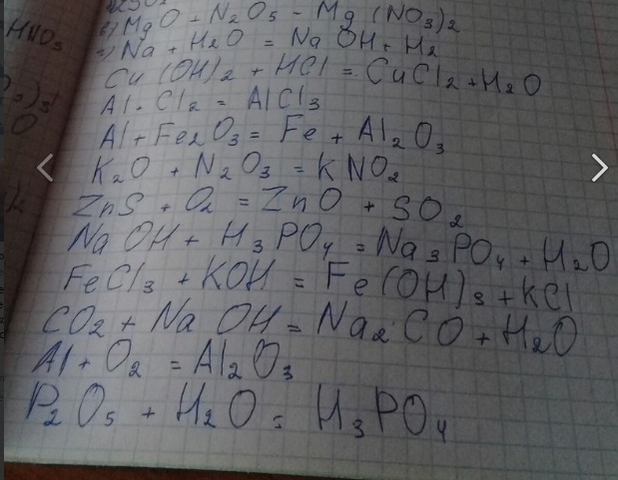 HNO3
в) MgO + N2O5 - Mg (NO3)2
г) Na + H2O = NaOH + H2
Cu (OH)2 + HCl = CuCl2 + H2O
Al · Cl2 = AlCl3
Al + Fe2O3 = Fe + Al2O3
K2O + N2O3 = KNO2
ZnS + O2 = ZnO + SO2
NaOH + H3PO4 = Na3PO4 + H2O
FeCl3 + KOH = Fe(OH)3 + KCl
CO2 + NaOH = Na2CO + H2O
Al + O2 = Al2O3
P2O5 + H2O = H3PO4